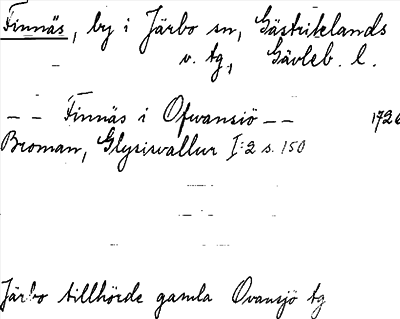 Finnäs, by i Järbo sn, Gästriklands
v. tg, Gävleb. l.
– – Finnäs i Ofwansiö – – 1726
Broman, Glysisvallur I:2 s. 150
Järbo tillhörde gamla Ovansjö tg